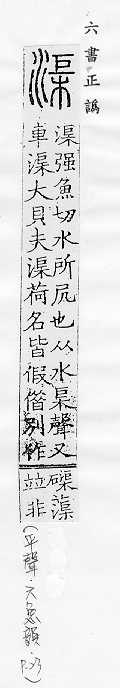 六書正譌
渠
渠强魚切水所凥也从水聲又
車渠大貝夫渠荷名皆假借別作
磲蕖
竝非
(平聲.六魚韻.P.23)